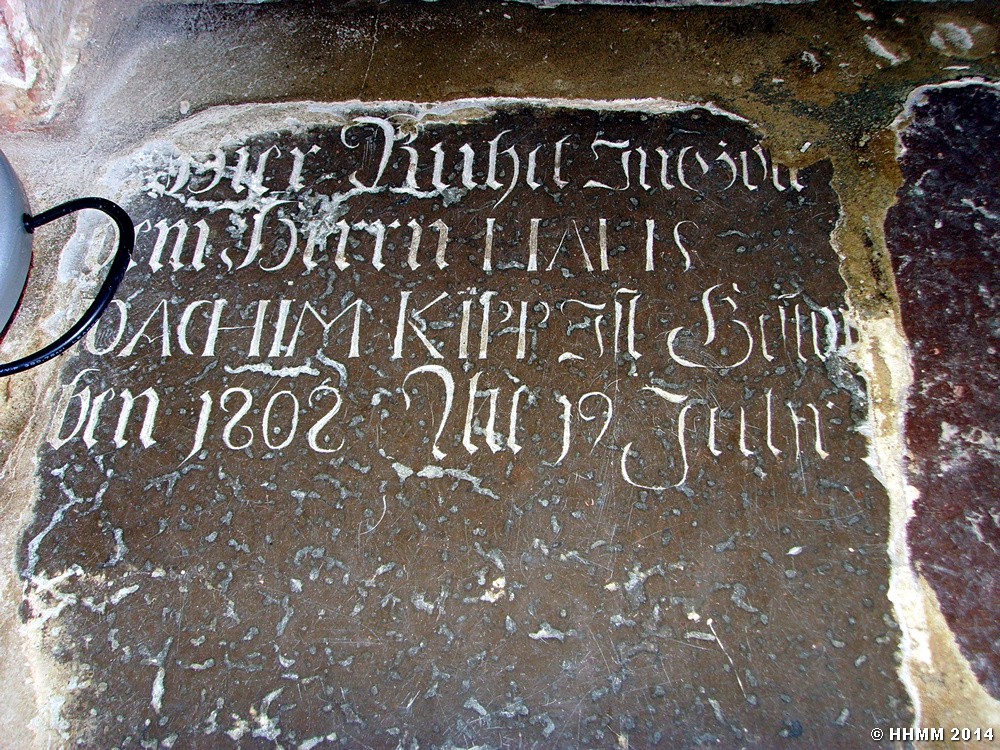 Hier Ruhet In Gott
dem Herrn HANS
JOACHIM KIPP Ist Gestor
ben 1808 Alt 19 Jahr
© HHMM 2014